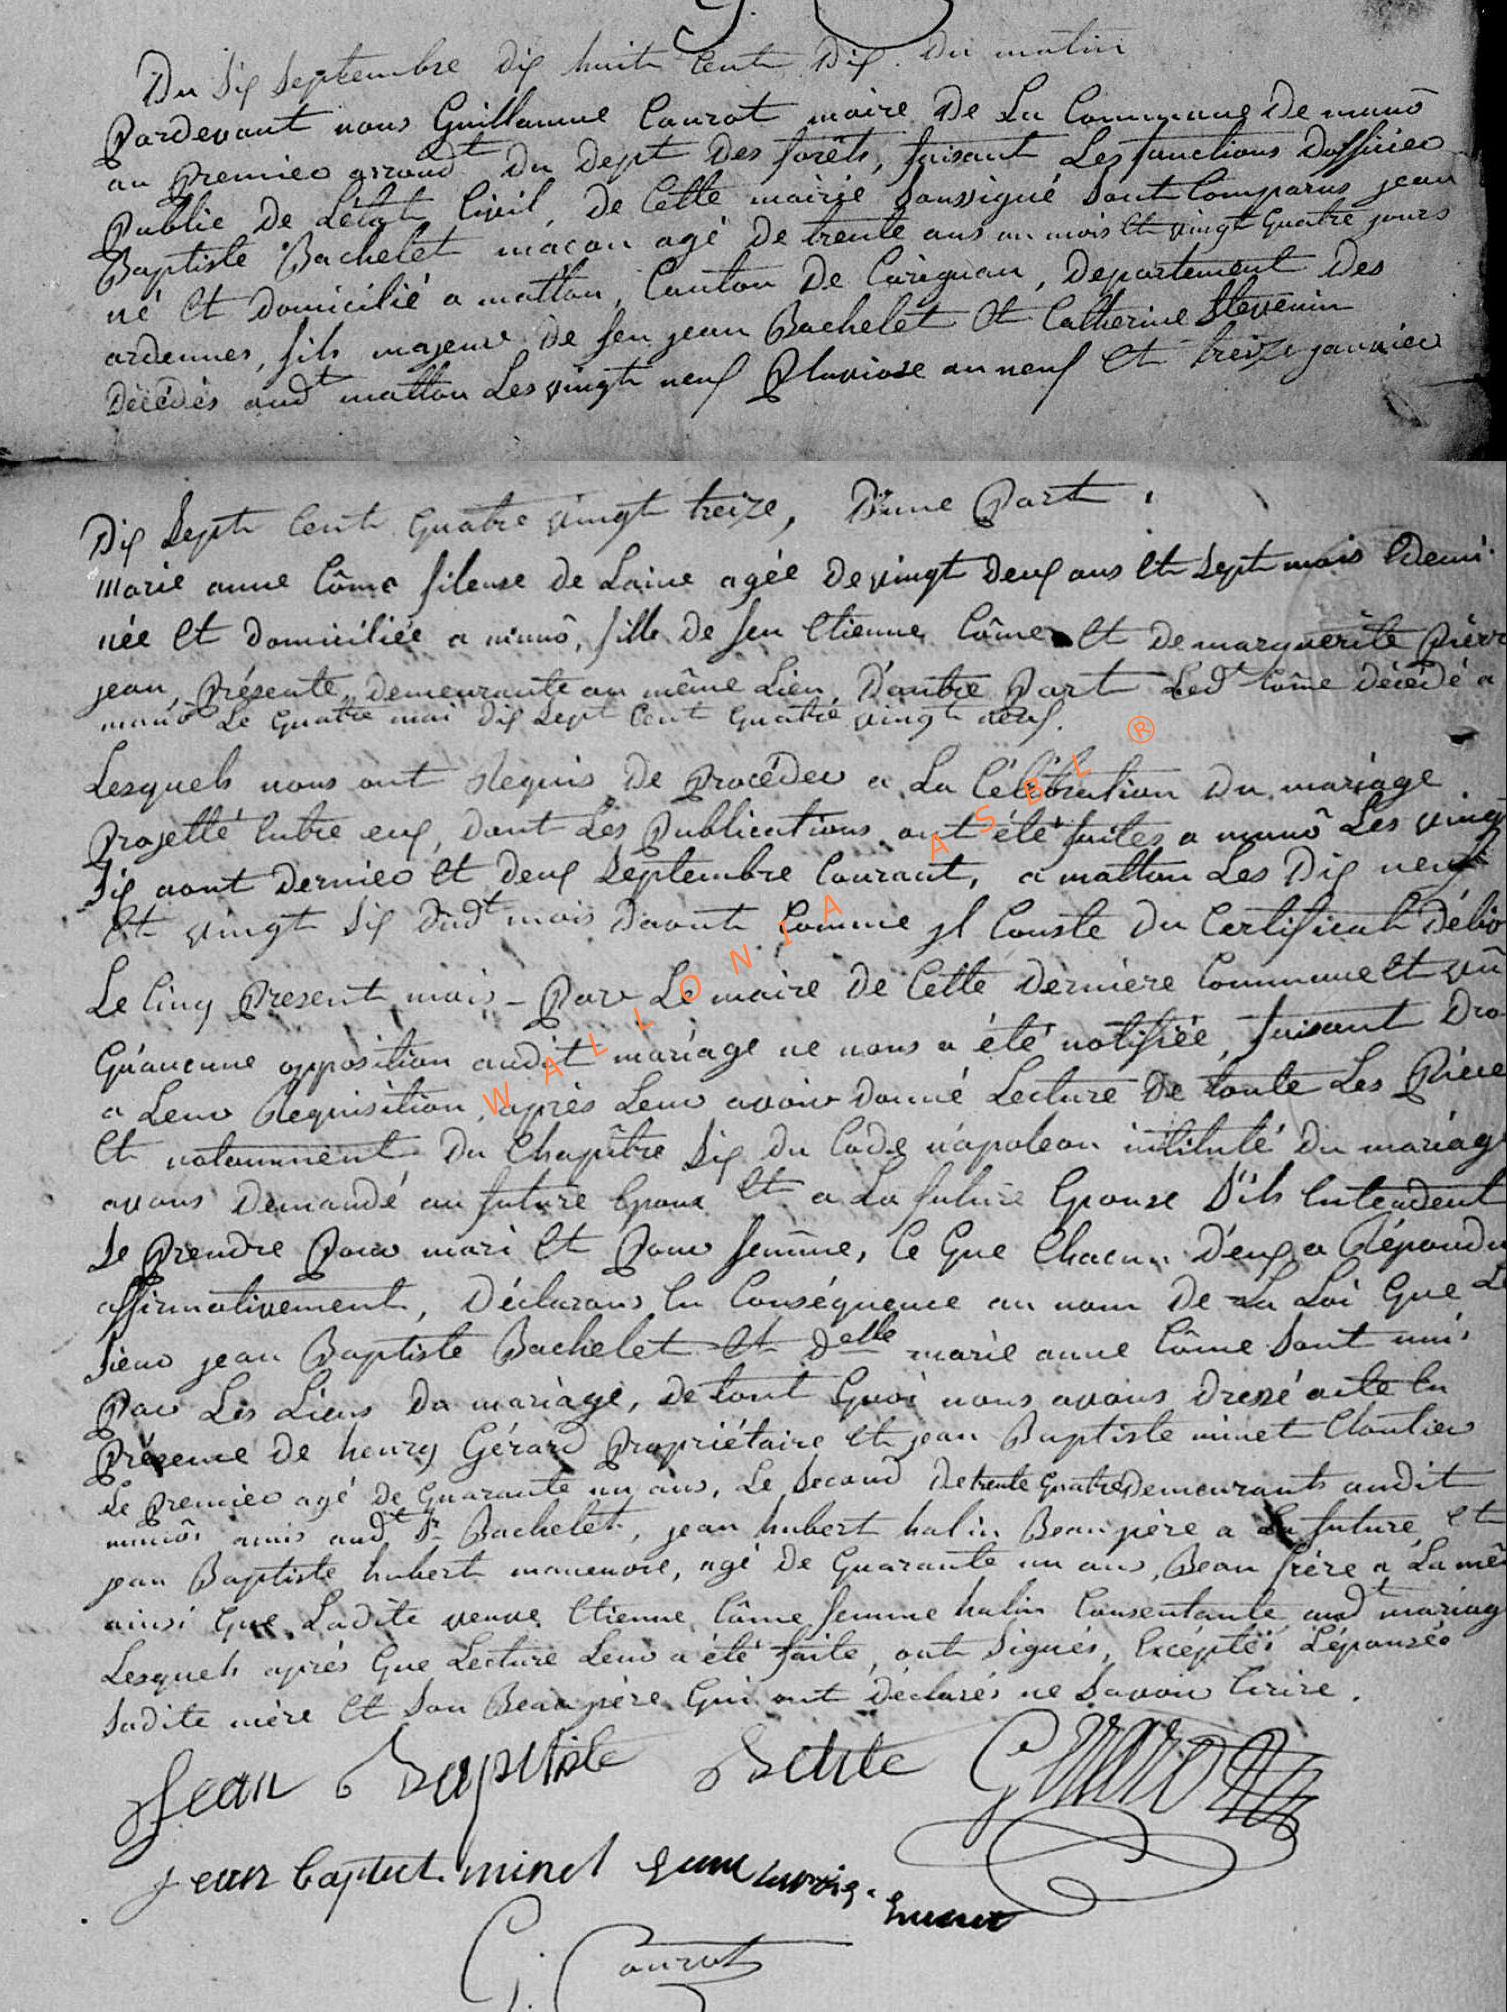 Du Six Septembre dix huit Cent Dix. Du matin
Pardevant nous Guillaume Conrot maire De La Commune De munô
au Premier arrond.t Du Dept Des forêts, faisant Les fonctions Dofficier
Public De Létat Civil, De Cette mairie Soussigné Sont Comparus jean
Baptiste Bachelet maçon agé De trente ans un mois Et vingt Quatre jours
né Et Domicilié a matton, Canton De Carignan, Département Des
ardennes, fils majeur De feu jean Bachelet Et Catherine Stevenin
Décédés aud.t matton Les vingt neuf Pluviose an neuf Et treize janvier
Dix Sept Cent Quatre vingt treize, D'une Part.
Marie anne Côme fileuse de Laine agée De vingt Deux ans Et Sept mois Edemi
née Et Domiciliée a munô, fille De feu Etienne Côme Et De marguerite Pierr
jean, Présente, Demeurante au même Lieu, D'autre Part Led.t Côme Décédé a
munô Le Quatre mai Dix Sept Cent Quatre vingt neuf.
Lesquels nous ont Requis De Procéder a La Célébration Du mariage
Projetté Entre eux, Dont Les Publications ont été faites a munô Les ving
Six aout Dernier Et Deux Septembre Courant, a matton Les Dix neuf
Et vingt Six Dud.t mois Daout Comme jl Conste Du Certificat Déliv
Le Cinq Présent mois - Par Le maire De Cette Derniere Commune Et vû
Qu'aucune opposition audit mariage ne nous a été notifiée, faisant Dro
a Leur Requisition, après Leur avoir Donné Lecture De toute Les Pièce
Et notamment Du Chapître Six Du Code napoleon intitulé Du mariag
avons Demandé au future Epoux Et a La future Epouse S'ils Entendent
Se Prendre Pour mari Et Pour femme, Ce Que Chacun D'eux a Répondu
affirmativement, Déclarons En Conséquence au nom De La Loi Que L
Sieur jean Baptiste Bachelet Et Delle marie anne Côme Sont unis
Par Les Liens Du mariage, De tout Quoi nous avons Dressé acte En
Présence De henry Gérard Propriétaire Et jean Baptiste minet Cloutier
Le Premier agé De Quarante un ans, Le Second De trente Quatre Demeurants audit
munô amis aud.t Sr Bachelet, jean hubert halin Beau père a La future, Et
jean Baptiste hubert manenvoie, agé De Quarante un ans, Beau frère a La mê
ainsi Que Ladite veuve Etienne Côme femme halin Consentante aud.t mariag
Lesquels après Que Lecture Leur a été faite, ont Signés, Exceptés L'épousée
Sadite mère Et Son Beau père Qui ont Déclarés ne Savoir Ecrire.
Jean Baptiste Gerard
jean baptist minet
G. Conrot
WALLONIA ASBL ®